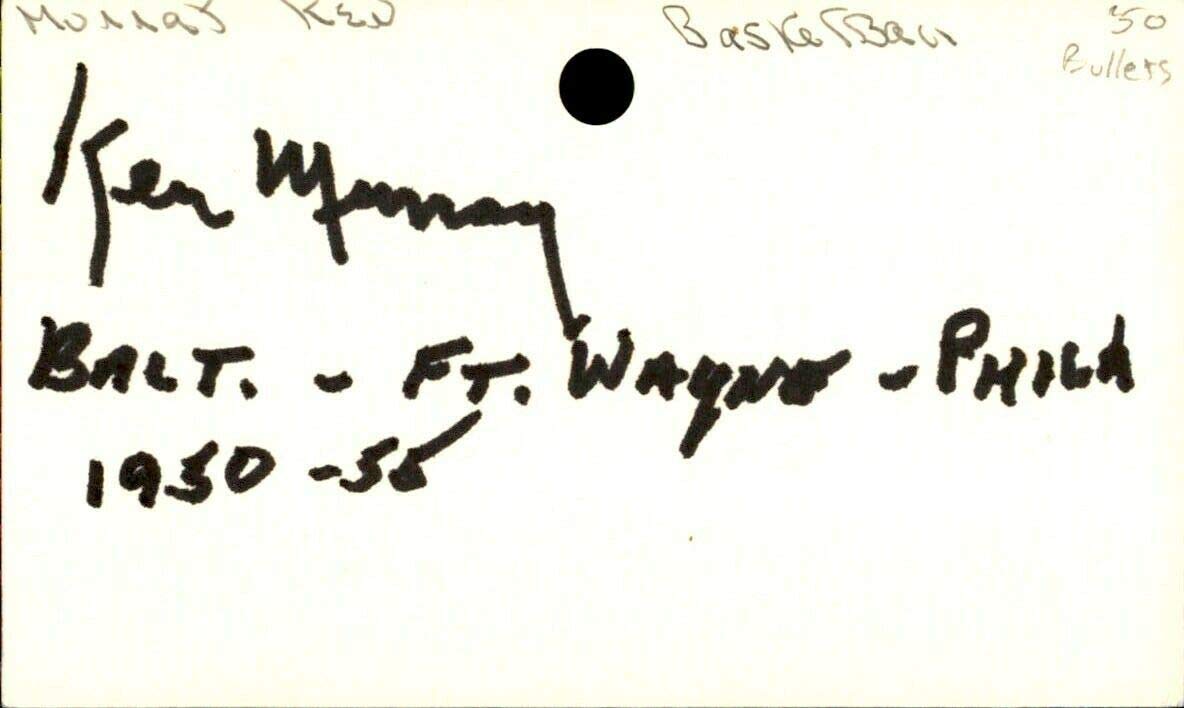 Murray Ken Basketball 50
Bullets
Ken Murray
BALT. - FT. WAYNE - PHILA
1950-55